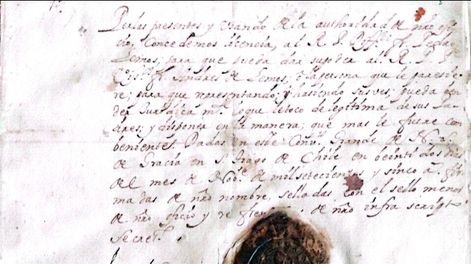 Por las presentes y usando de la authoridad de nro ofi
cio, Concedemos licencia, al R. P.
Lemos, para que pueda dar su poder al R. P.
de Lemos, o a persona que le parecie
re; para que representando, y haziendo sus veses; pueda ven
der su lo que le toco de legitima de sus Pa
dres; y disponga en la manera; que mas le fuere con
beniente. Dadas en este Convto Grande de Nra Sa
de Gracia en S. Tiago de Chile en beinti dos dias
del mes de Nobre de mil setecientos y sinco años fir
madas de nro nombre, selladas con el sello menor
de nro oficio y de nro infra scripto
Secreto